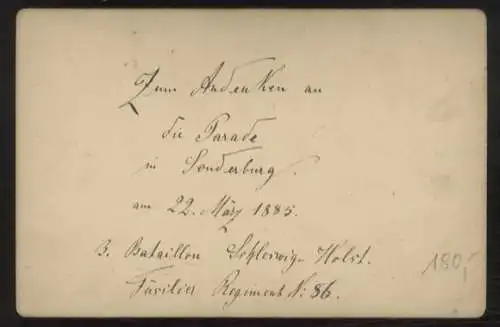 Zum Andenken an
die Parade
in Sonderburg.
am 22. März 1885.
3. Bataillon Schleswig-Holst.
Füsilier Regiment N: 86.
180,-